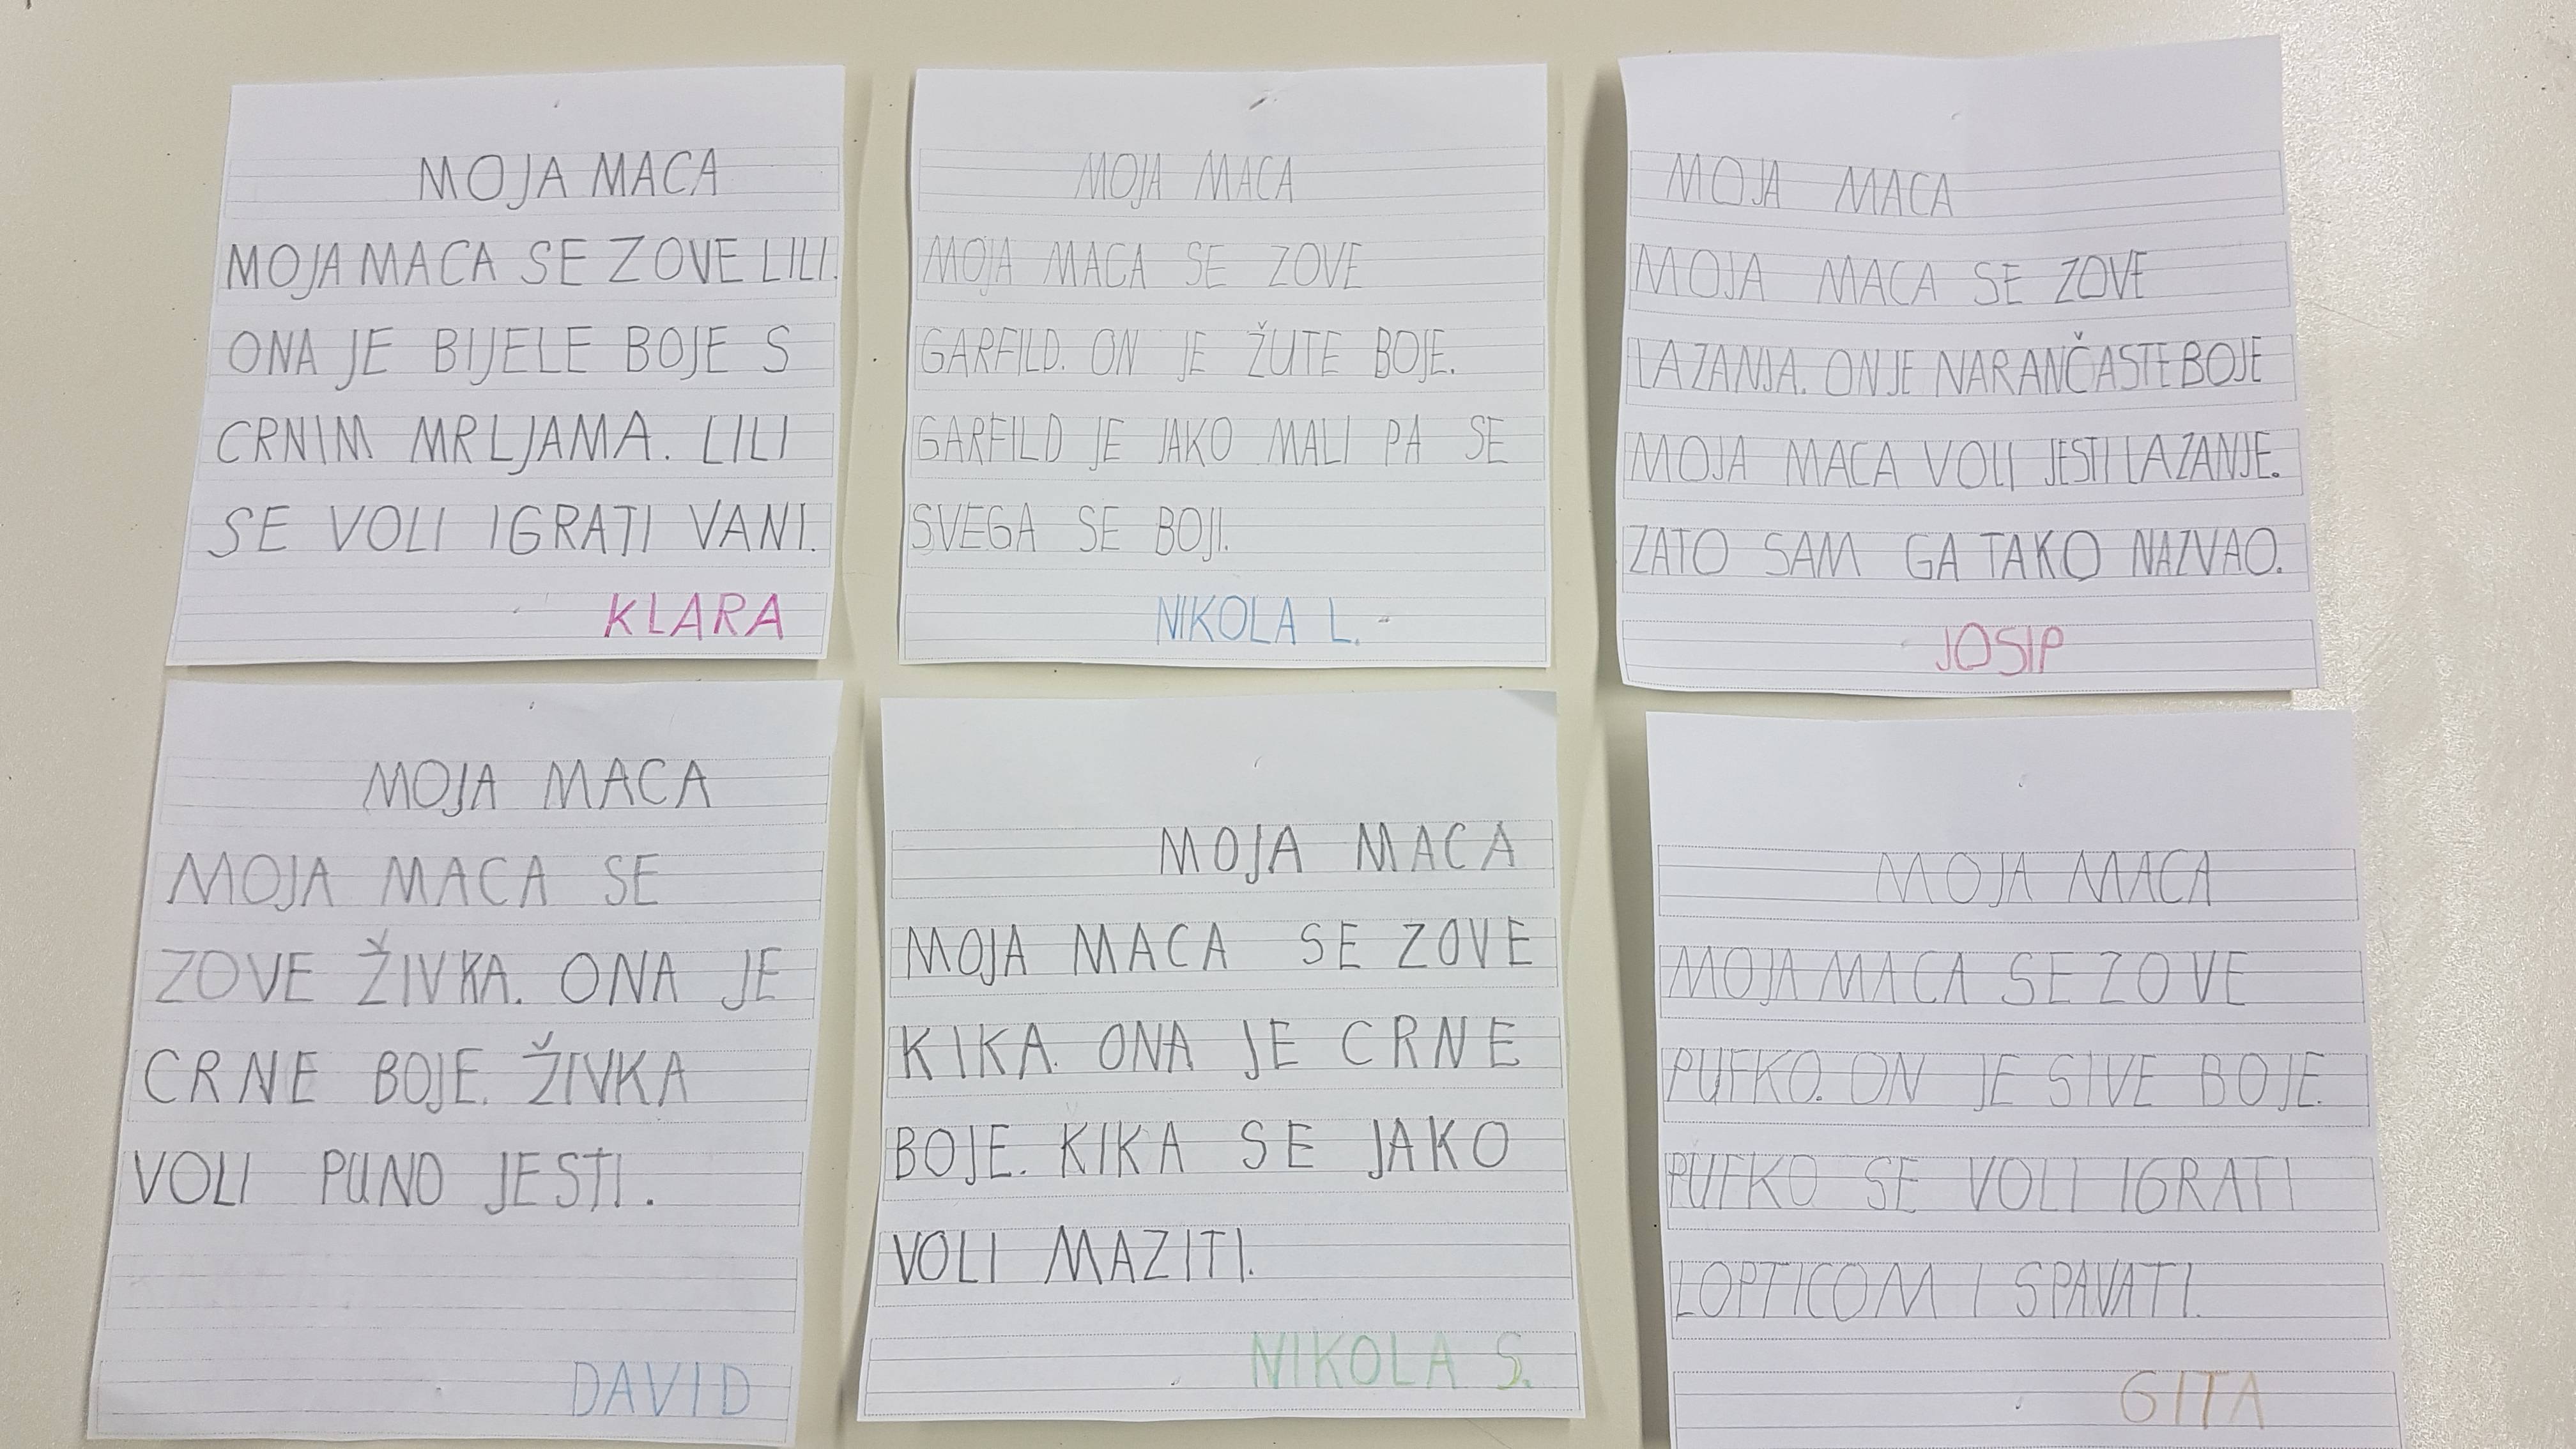 MOJA MACA
MOJA MACA SE ZOVE LILI.
ONA JE BIJELE BOJE S
CRNIM MRLJAMA. LILI
SE VOLI IGRATI VANI.
KLARA
MOJA MACA
MOJA MACA SE ZOVE
GARFILD. ON JE ŽUTE BOJE.
GARFILD JE JAKO MALI PA SE
SVEGA SE BOJI.
NIKOLA L.
MOJA MACA
MOJA MACA SE ZOVE
LAZANJA. ON JE NARANČASTE BOJE
MOJA MACA VOLI JESTI LAZANJE.
ZATO SAM GA TAKO NAZVAO.
JOSIP
MOJA MACA
MOJA MACA SE
ZOVE ŽIVKA. ONA JE
CRNE BOJE. ŽIVKA
VOLI PUNO JESTI.
DAVID
MOJA MACA
MOJA MACA SE ZOVE
KIKA. ONA JE CRNE
BOJE. KIKA SE JAKO
VOLI MAZITI.
NIKOLA S.
MOJA MACA
MOJA MACA SE ZOVE
PUFKO. ON JE SIVE BOJE.
PUFKO SE VOLI IGRATI
LOPTICOM I SPAVATI.
GITA